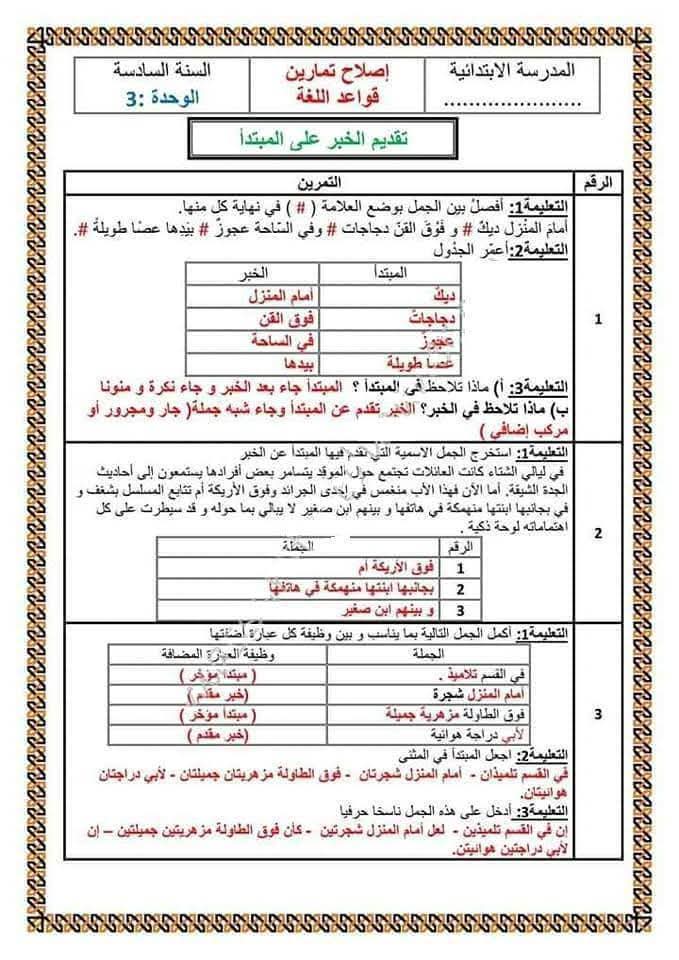 المدرسة الابتدائية
......................
إصلاح تمارين
قواعد اللغة
السنة السادسة
الوحدة :3
تقديم الخبر على المبتدأ
الرقم التمرين
1
التعليمة1: أفصلُ بين الجمل بوضع العلامة ( # ) في نهاية كل منها.
أمامَ المنْزل ديكٌ # و فَوْقَ القنّ دجاجات # وفي السّاحة عجوزٌ # بيَدِها عصًا طويلةٌ #.
التعليمة2:أعمّر الجدْول
المبتدأ الخبر
ديكٌ أمام المنزل
دجاجاتٌ فوق القن
عجوزٌ في الساحة
عصا طويلة بيدها
التعليمة3: أ) ماذا تلاحظ في المبتدأ ؟ المبتدأ جاء بعد الخبر و جاء نكرة و منونا
ب) ماذا تلاحظ في الخبر؟ الخبر تقدم عن المبتدأ وجاء شبه جملة( جار ومجرور أو
مركب إضافي )
2
التعليمة1: استخرج الجمل الاسمية التي تقدم فيها المبتدأ عن الخبر
في ليالي الشتاء كانت العائلات تجتمع حول الموقد يتسامر بعض أفرادها يستمعون إلى أحاديث
الجدة الشيقة. أما الآن فهذا الأب منغمس في إحدى الجرائد وفوق الأريكة أم تتابع المسلسل بشغف و
في بجانبها ابنتها منهمكة في هاتفها و بينهم ابن صغير لا يبالي بما حوله و قد سيطرت على كل
اهتماماته لوحة ذكية .
الرقم الجملة
1 فوق الأريكة أم
2 بجانبها ابنتها منهمكة في هاتفها
3 و بينهم ابن صغير
3
التعليمة1: أكمل الجمل التالية بما يناسب و بين وظيفة كل عبارة أضفتها
الجملة وظيفة العبارة المضافة
في القسم تلاميذ . ( مبتدأ مؤخر )
أمام المنزل شجرة (خبر مقدم )
فوق الطاولة مزهرية جميلة ( مبتدأ مؤخر )
لأبي دراجة هوائية (خبر مقدم )
التعليمة2: اجعل المبتدأ في المثنى
في القسم تلميذان - أمام المنزل شجرتان - فوق الطاولة مزهريتان جميلتان - لأبي دراجتان
هوائيتان.
التعليمة3: أدخل على هذه الجمل ناسخا حرفيا
إن في القسم تلميذين - لعل أمام المنزل شجرتين - كأن فوق الطاولة مزهريتين جميلتين – إن
لأبي دراجتين هوائيتن.